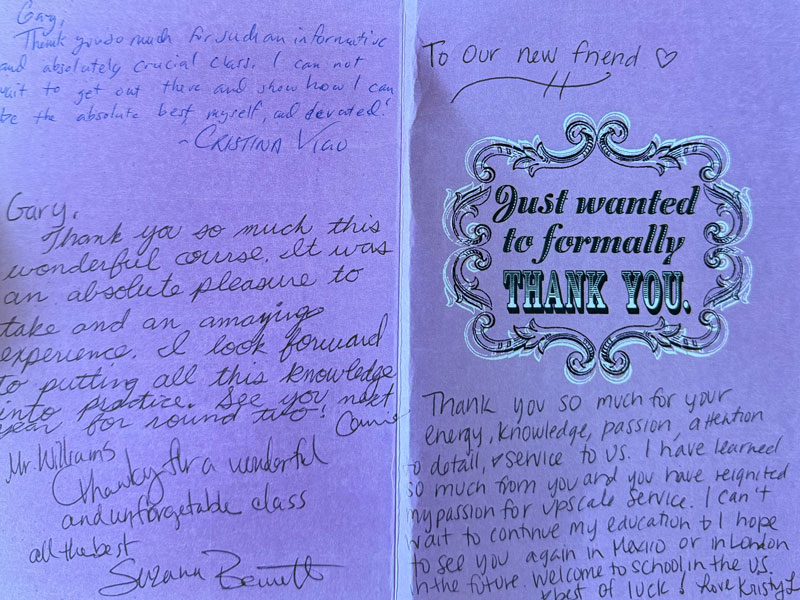 Gary,
Thank you so much for such an informative
and absolutely crucial class. I can not
wait to get out there and show how I can
be the absolute best, myself, and devoted!
~CRISTINA
Gary,
Thank you so much this
wonderful course. It was
an absolute pleasure to
take and an amazing
experience. I look forward
to putting all this knowledge
into practice. See you next
year for round two!
Mr Williams
for a wonderful
and unforgetable class
all the best
To Our new friend ♡
Just wanted
to formally
THANK YOU.
Thank you so much for your
energy, knowledge, passion, attention
to detail, & service to us. I have learned
so much from you and you have reignited
my passion for upscale service. I can't
wait to continue my education & I hope
to see you again in Mexico or in London
in the future. Welcome to school in the US.
& best of luck! Love Kristy L